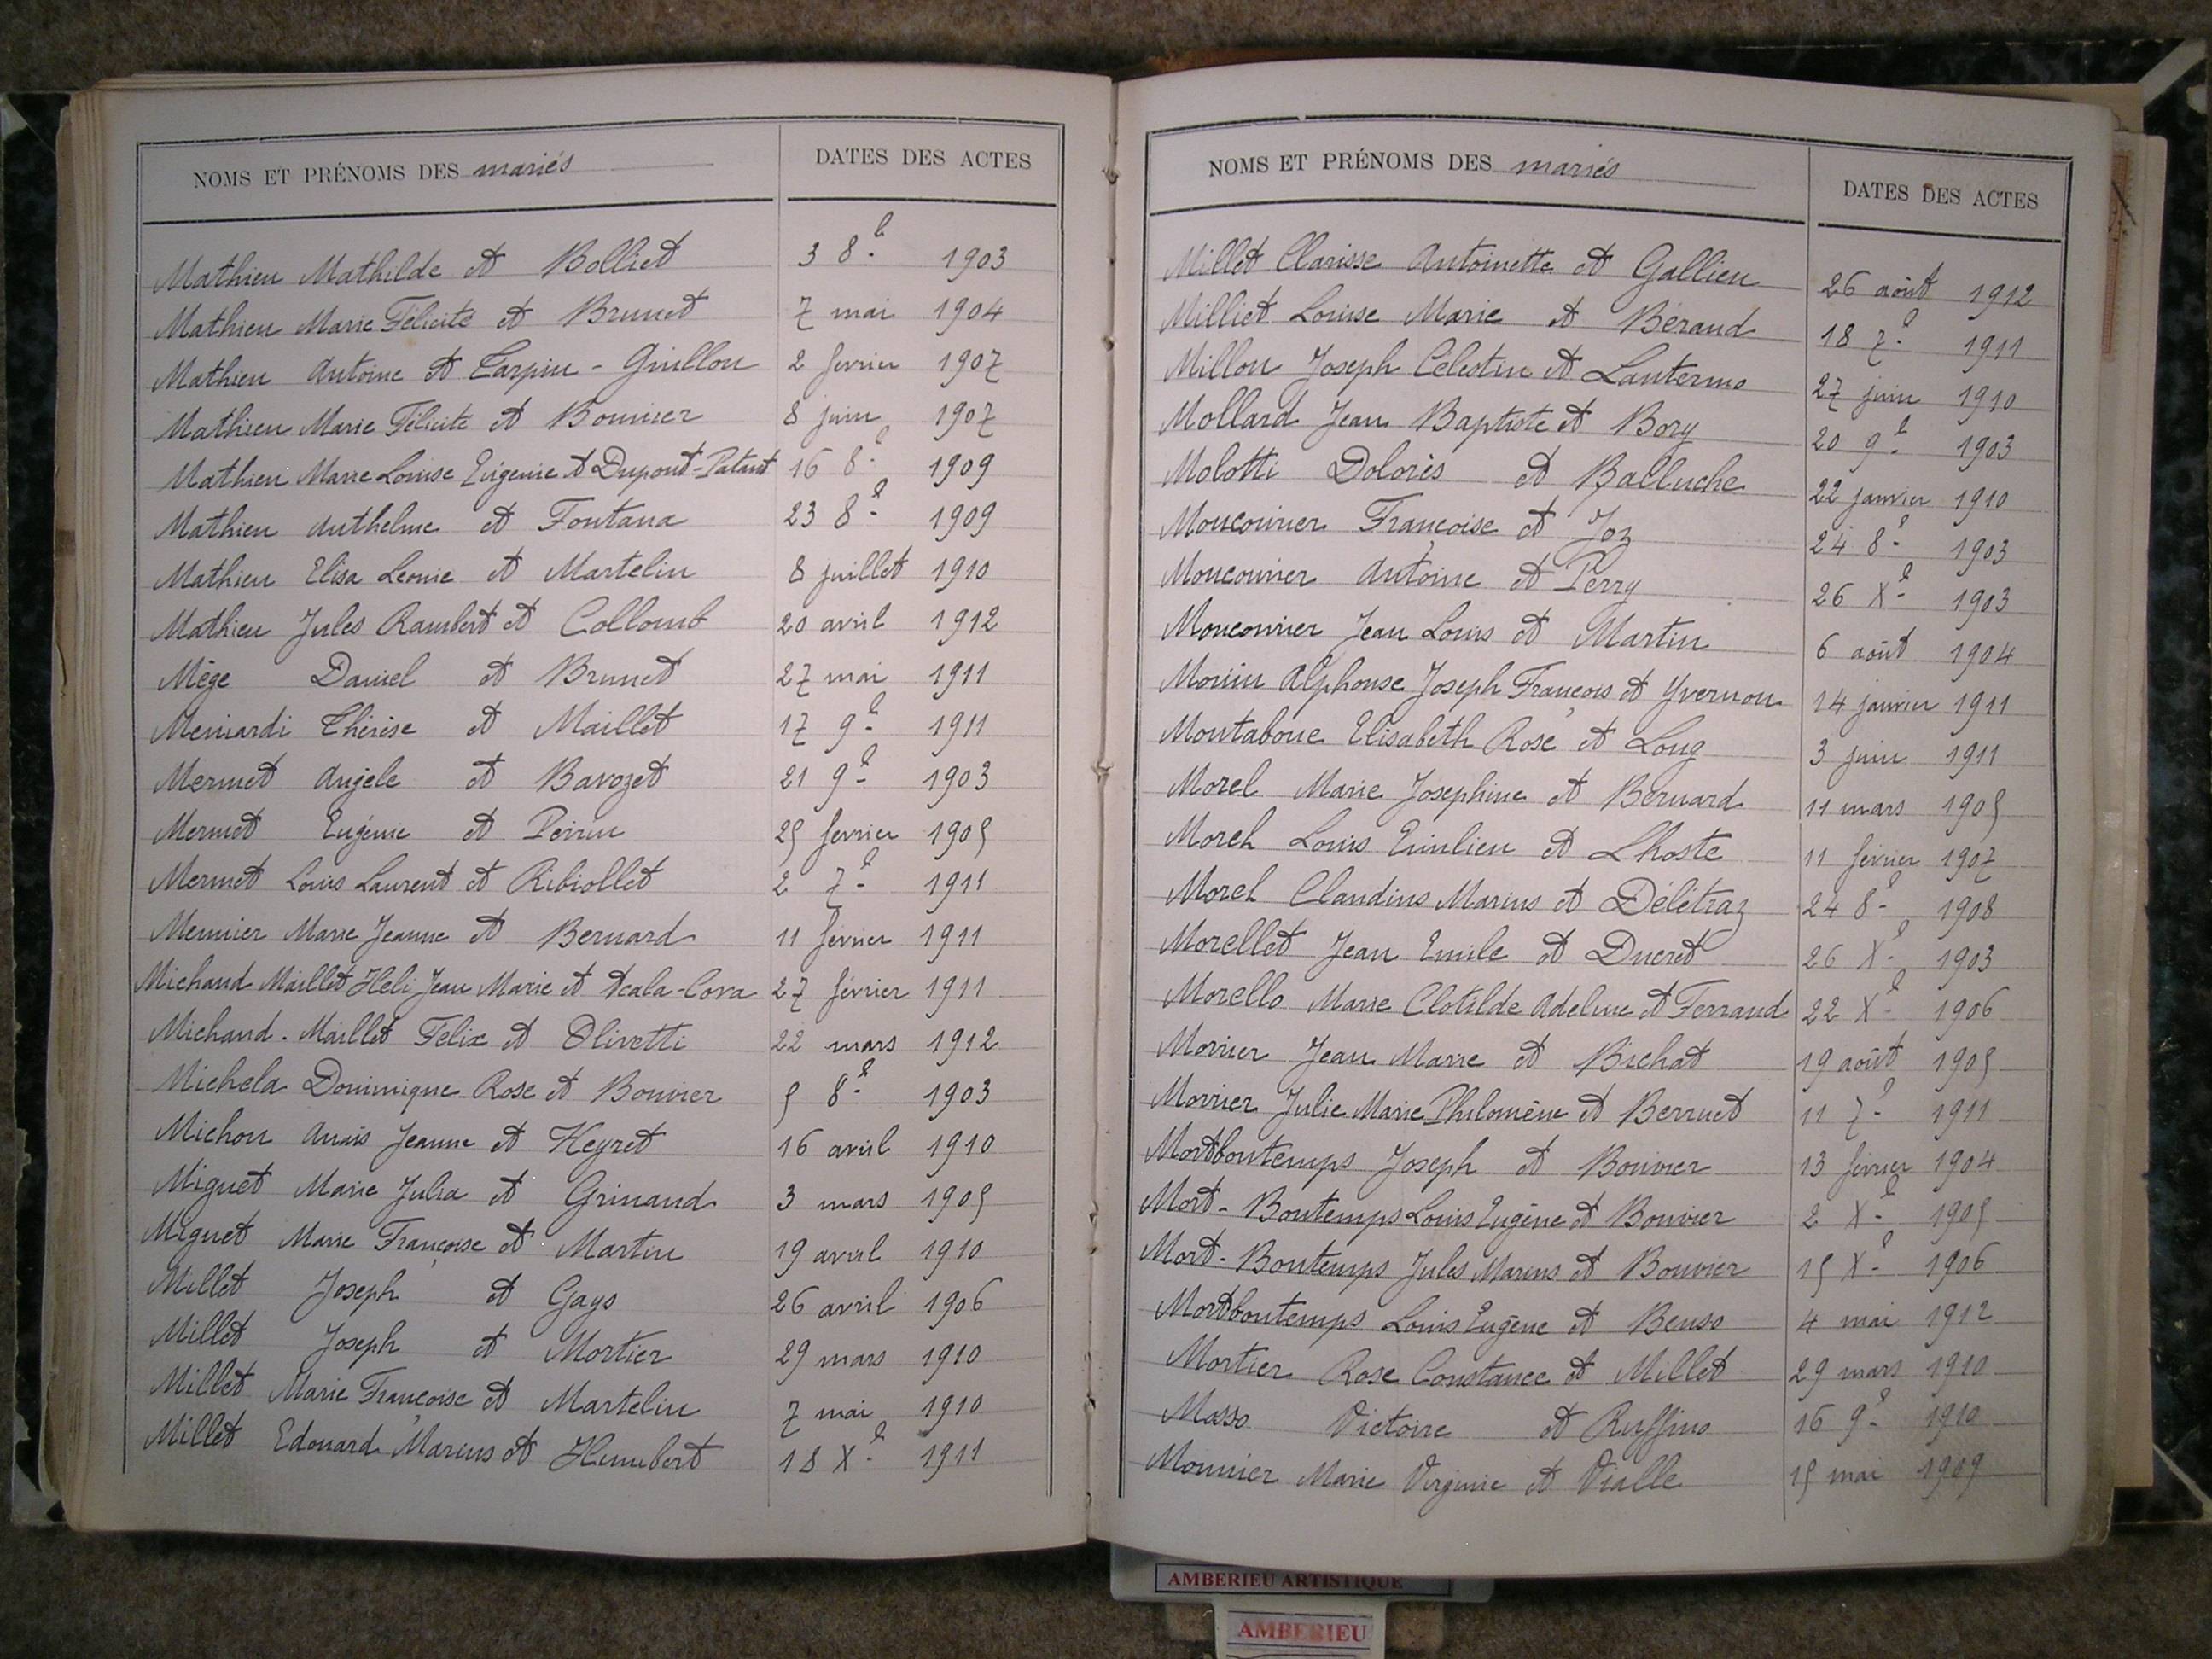 NOMS ET PRÉNOMS DES mariés DATES DES ACTES
Mathieu Mathilde et Bolliet 3 8bre 1903
Mathieu Marie Félicité et Brunet 7 mai 1904
Mathieu Antoine et Carpin-Guillon 2 fevrier 1907
Mathieu Marie Félicité et Bouvier 8 juin 1907
Mathieu Marie Louise Eugenie et Dupont-Patant 16 8bre 1909
Mathieu Anthelme et Fontana 23 8bre 1909
Mathieu Elisa Leonie et Martelin 8 juillet 1910
Mathieu Jules Rambert et Collomb 20 avril 1912
Mège Daniel et Brunet 27 mai 1911
Meniardi Thérèse et Maillet 17 9bre 1911
Mermet Angèle et Bavozet 21 9bre 1903
Mermet Eugénie et Perrin 25 fevrier 1905
Mermet Louis Laurent et Ribiollet 2 7bre 1911
Meunier Marie Jeanne et Bernard 11 février 1911
Michaud Maillet Héli Jean Marie et Scala-Cova 27 février 1911
Michaud-Maillet Félix et Olivetti 22 mars 1912
Michela Dominique Rose et Bouvier 5 8bre 1903
Michon Anaïs Jeanne et Heyret 16 avril 1910
Miguet Marie Julia et Grinand 3 mars 1905
Miguet Marie Françoise et Martin 19 avril 1910
Millet Joseph et Gays 26 avril 1906
Millet Joseph et Mortier 29 mars 1910
Millet Marie Françoise et Martelin 7 mai 1910
Millet Edouard Marius et Humbert 18 Xbre 1911
NOMS ET PRÉNOMS DES mariés DATES DES ACTES
Millet Clarisse Antoinette et Gallien 26 août 1912
Milliet Louise Marie et Béraud 18 7bre 1911
Millon Joseph Célestin et Lantermo 27 juin 1910
Mollard Jean Baptiste et Bory 20 9bre 1903
Molotti Dolorès et Balluche 22 janvier 1910
Moucouvier Françoise et Joz 24 8bre 1903
Moucouvier Antoine et Perry 26 Xbre 1903
Moucouvier Jean Louis et Martin 6 août 1904
Monin Alphonse Joseph François et Yvernon 14 janvier 1911
Montabone Elisabeth Rose et Long 3 juin 1911
Morel Marie Josephine et Bernard 11 mars 1905
Morel Louis Emilien et Lhoste 11 février 1907
Morel Claudius Marius et Délétraz 24 8bre 1908
Morellet Jean Emile et Ducret 26 Xbre 1903
Morello Marie Clotilde Adeline et Ferrand 22 Xbre 1906
Morrier Jean Marie et Bichat 19 août 1905
Morrier Julie Marie Philomène et Berruet 11 7bre 1911
Mortbontemps Joseph et Bouvier 13 février 1904
Mort-Bontemps Louis Eugène et Bouvier 2 Xbre 1905
Mort-Bontemps Jules Marius et Bouvier 15 Xbre 1906
Mortbontemps Louis Eugène et Benso 4 mai 1912
Mortier Rose Constance et Millet 29 mars 1910
Mosso Victoire et Ruffino 16 9bre 1910
Mounier Marie Virginie et Vialle 15 mai 1909
AMBERIEU ARTISTIQUE
AMBERIEU